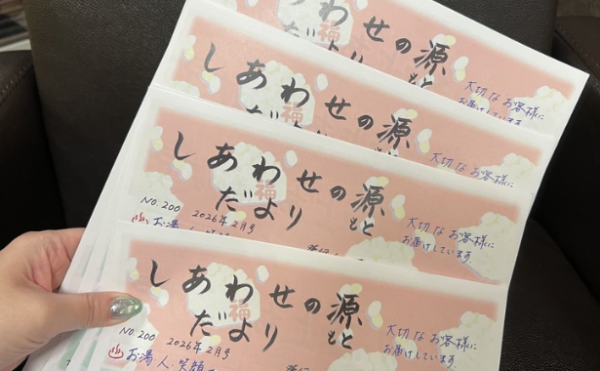 しあわせの源
もと
福
だより
大切なお客様に
お届けしています。
しあわせの源
もと
福
だより
大切なお客様に
しあわせの源
もと
福
だより
NO.200
2026年2月号
大切なお客様に
お届けしています。
お湯
しあわせの源
もと
福
だより
NO.200
2026年2月号
大切なお客様に
お届けしています。
お湯、人、笑顔